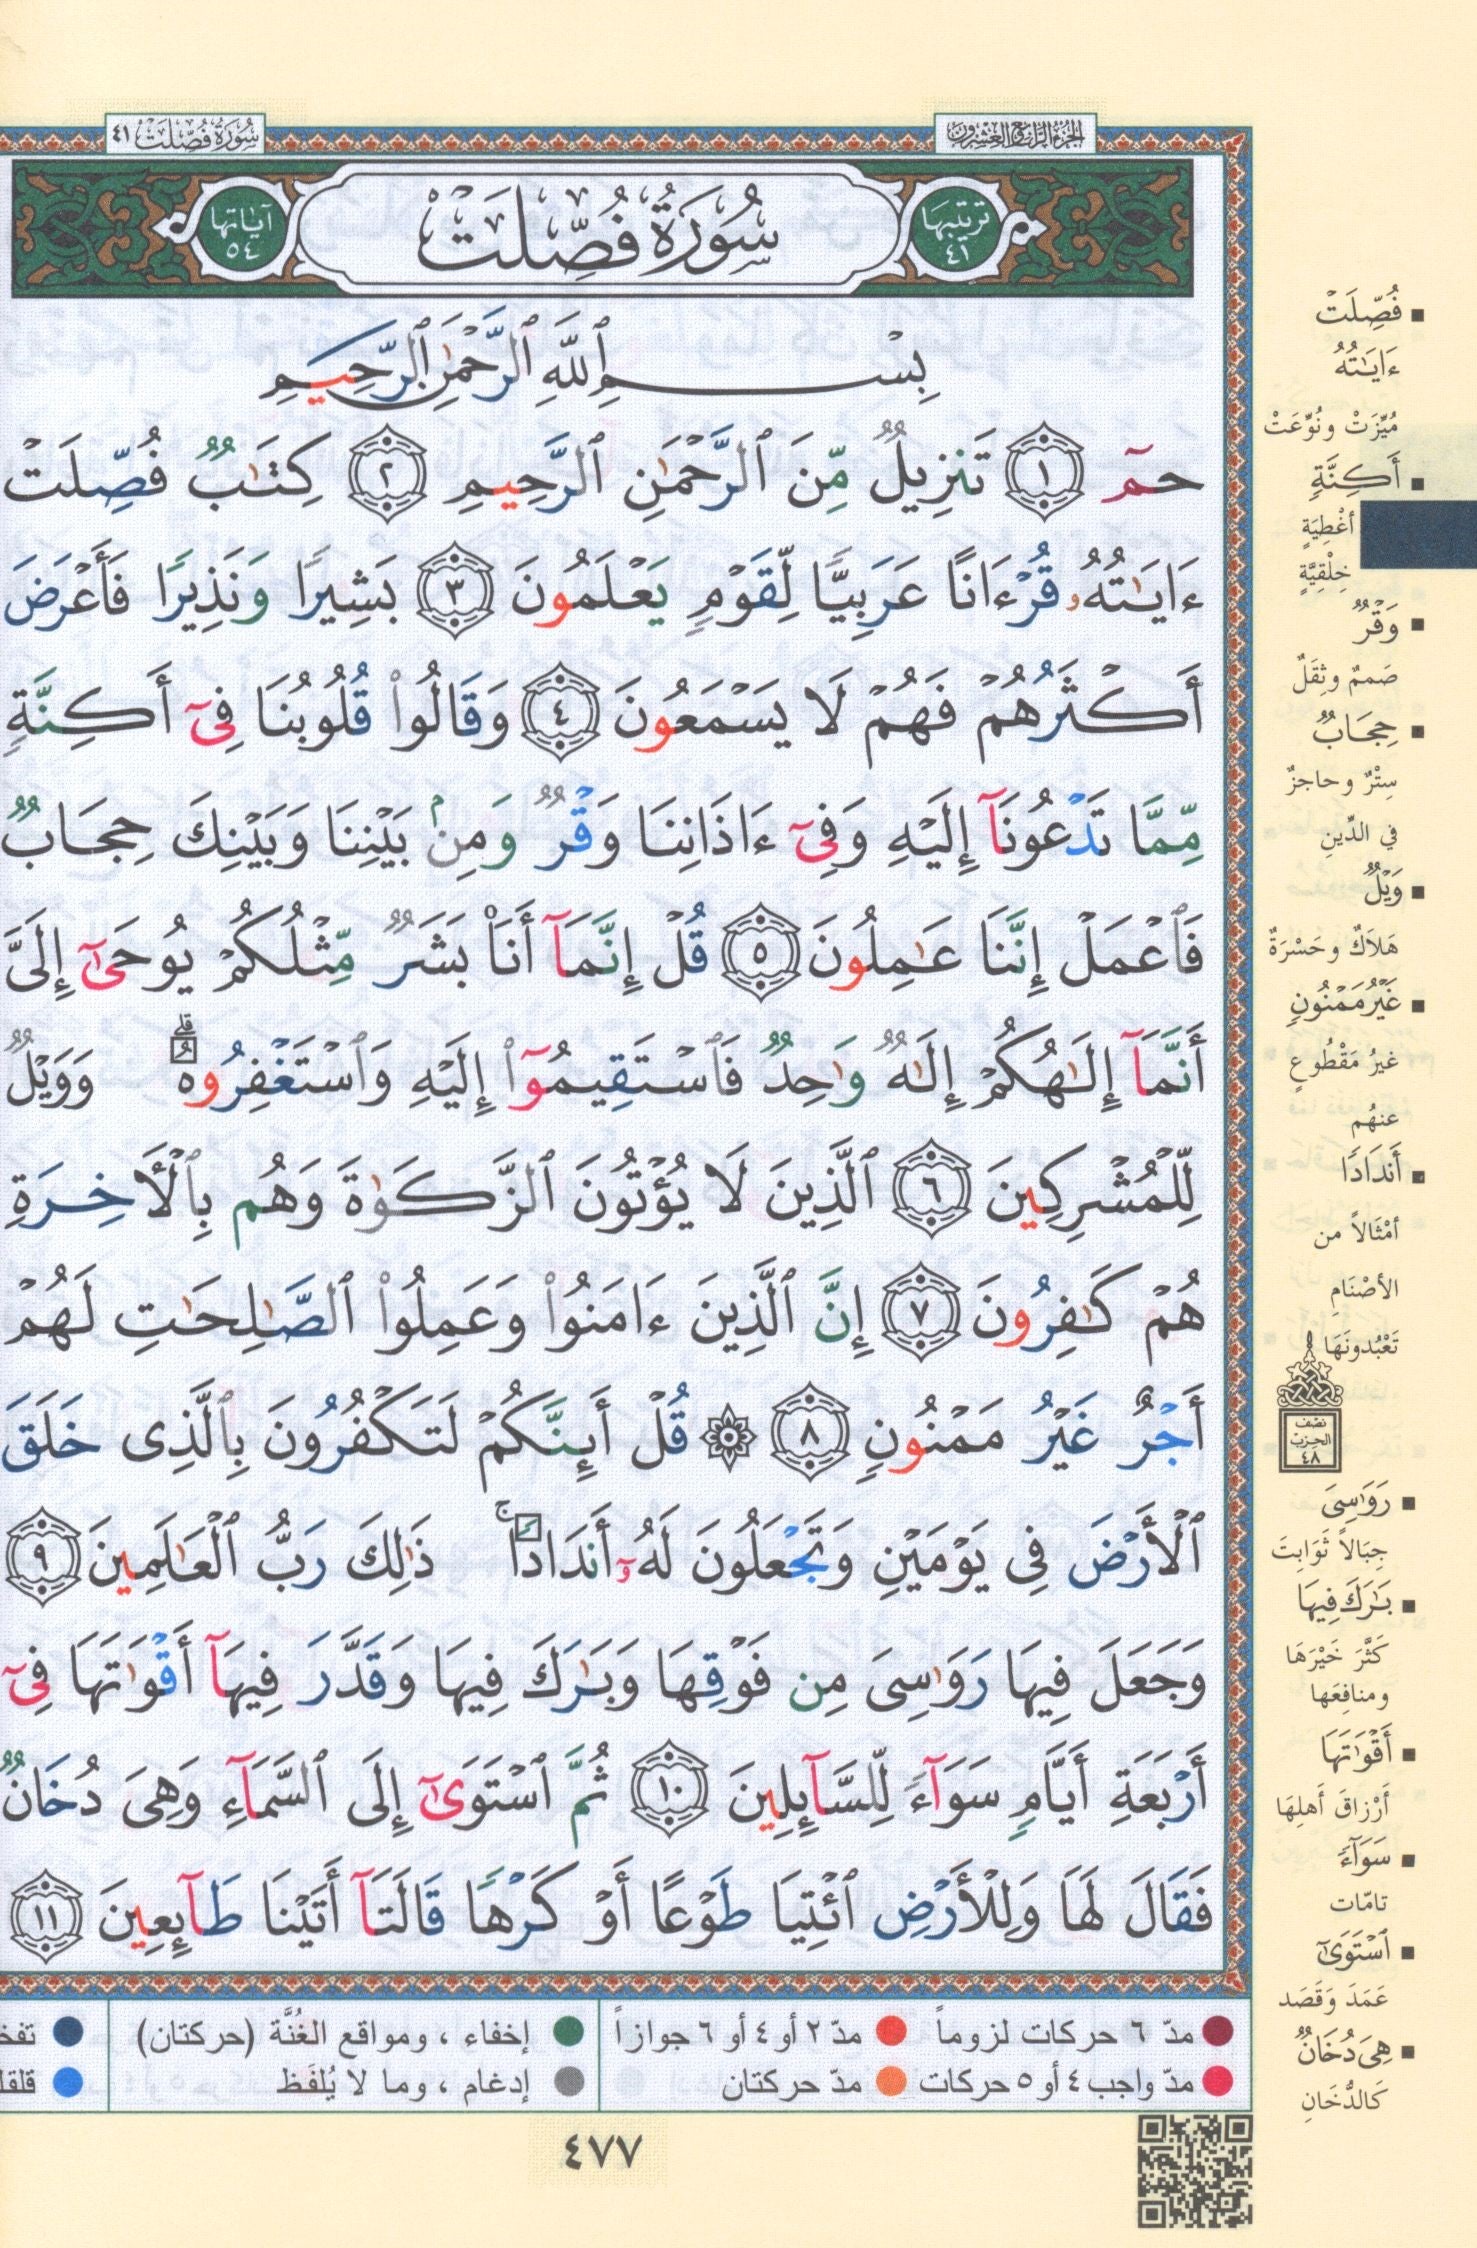 الجزء الرابع والعشرون
سُورَةُ فُصِّلَتْ ٤١
ترتيبها ٤١
سُورَةُ فُصِّلَتْ
آياتها ٥٤
بِسْمِ ٱللَّهِ ٱلرَّحْمَٰنِ ٱلرَّحِيمِ
حمٓ ١ تَنزِيلٌ مِّنَ ٱلرَّحْمَٰنِ ٱلرَّحِيمِ ٢ كِتَٰبٌ فُصِّلَتْ
ءَايَٰتُهُۥ قُرْءَانًا عَرَبِيًّا لِّقَوْمٍ يَعْلَمُونَ ٣ بَشِيرًا وَنَذِيرًا فَأَعْرَضَ
أَكْثَرُهُمْ فَهُمْ لَا يَسْمَعُونَ ٤ وَقَالُوا۟ قُلُوبُنَا فِىٓ أَكِنَّةٍ
مِّمَّا تَدْعُونَآ إِلَيْهِ وَفِىٓ ءَاذَانِنَا وَقْرٌ وَمِنۢ بَيْنِنَا وَبَيْنِكَ حِجَابٌ
فَٱعْمَلْ إِنَّنَا عَٰمِلُونَ ٥ قُلْ إِنَّمَآ أَنَا۠ بَشَرٌ مِّثْلُكُمْ يُوحَىٰٓ إِلَىَّ
أَنَّمَآ إِلَٰهُكُمْ إِلَٰهٌ وَٰحِدٌ فَٱسْتَقِيمُوٓا۟ إِلَيْهِ وَٱسْتَغْفِرُوهُ ۗ وَوَيْلٌ
لِّلْمُشْرِكِينَ ٦ ٱلَّذِينَ لَا يُؤْتُونَ ٱلزَّكَوٰةَ وَهُم بِٱلْأَخِرَةِ
هُمْ كَٰفِرُونَ ٧ إِنَّ ٱلَّذِينَ ءَامَنُوا۟ وَعَمِلُوا۟ ٱلصَّٰلِحَٰتِ لَهُمْ
أَجْرٌ غَيْرُ مَمْنُونٍ ٨ ۞ قُلْ أَئِنَّكُمْ لَتَكْفُرُونَ بِٱلَّذِى خَلَقَ
ٱلْأَرْضَ فِى يَوْمَيْنِ وَتَجْعَلُونَ لَهُۥٓ أَندَادًا ۚ ذَٰلِكَ رَبُّ ٱلْعَٰلَمِينَ ٩
وَجَعَلَ فِيهَا رَوَٰسِىَ مِن فَوْقِهَا وَبَٰرَكَ فِيهَا وَقَدَّرَ فِيهَآ أَقْوَٰتَهَا فِىٓ
أَرْبَعَةِ أَيَّامٍ سَوَآءً لِّلسَّآئِلِينَ ١٠ ثُمَّ ٱسْتَوَىٰٓ إِلَى ٱلسَّمَآءِ وَهِىَ دُخَانٌ
فَقَالَ لَهَا وَلِلْأَرْضِ ٱئْتِيَا طَوْعًا أَوْ كَرْهًا قَالَتَآ أَتَيْنَا طَآئِعِينَ ١١
فُصِّلَتْ
ءَايَٰتُهُ
مُيِّزَتْ ونُوِّعَتْ
أَكِنَّةٍ
أغْطِيَةٍ
خِلْقِيَّةٍ
وَقْرٌ
صَممٌ وثِقَلٌ
حِجَابٌ
سِتْرٌ وحاجزٌ
في الدِّينِ
وَيْلٌ
هَلاَكٌ وحَسْرَةٌ
غَيْرُ مَمْنُونٍ
غيرُ مَقْطُوعٍ
عنهُم
أَندَادًا
أمْثَالاً من
الأصْنَامِ
تَعْبُدونَهَا
نصف
الحزب
٤٨
رَوَٰسِىَ
جِبَالاً ثَوَابِتَ
بَٰرَكَ فِيهَا
كَثَّرَ خَيْرَهَا
ومنافِعَها
أَقْوَٰتَهَا
أَرْزاقَ أَهلِهَا
سَوَآءً
تامّات
ٱسْتَوَىٰٓ
عَمَدَ وَقَصَد
هِىَ دُخَانٌ
كَالدُّخَانِ
مدّ ٦ حركات لزوماً مدّ ٢ أو ٤ أو ٦ جوازاً إخفاء ، ومواقع الغُنَّة (حركتان) تفخ
مدّ واجب ٤ أو ٥ حركات مدّ حركتان إدغام ، وما لا يُلفَظ قلقل
٤٧٧